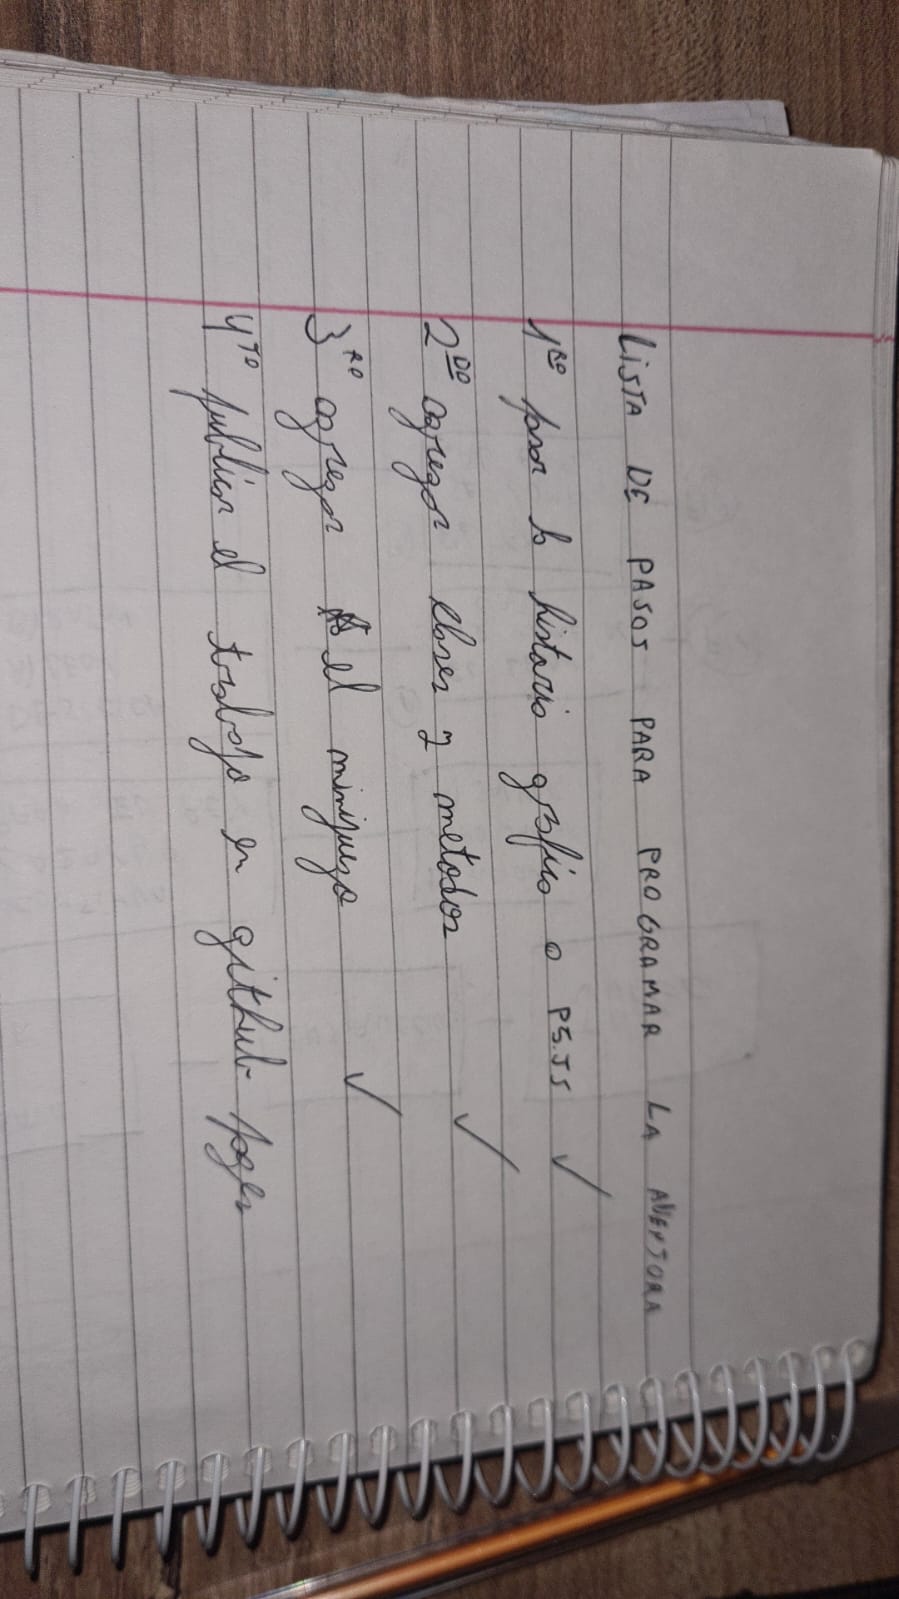 LISTA DE PASOS PARA PROGRAMAR LA AVENTURA
1RO pasar la historia gráfica a P5.JS ✓
2DO agregar clases y metodos ✓
3RO agregar el minijuego ✓
4TO publicar el trabajo en github pages